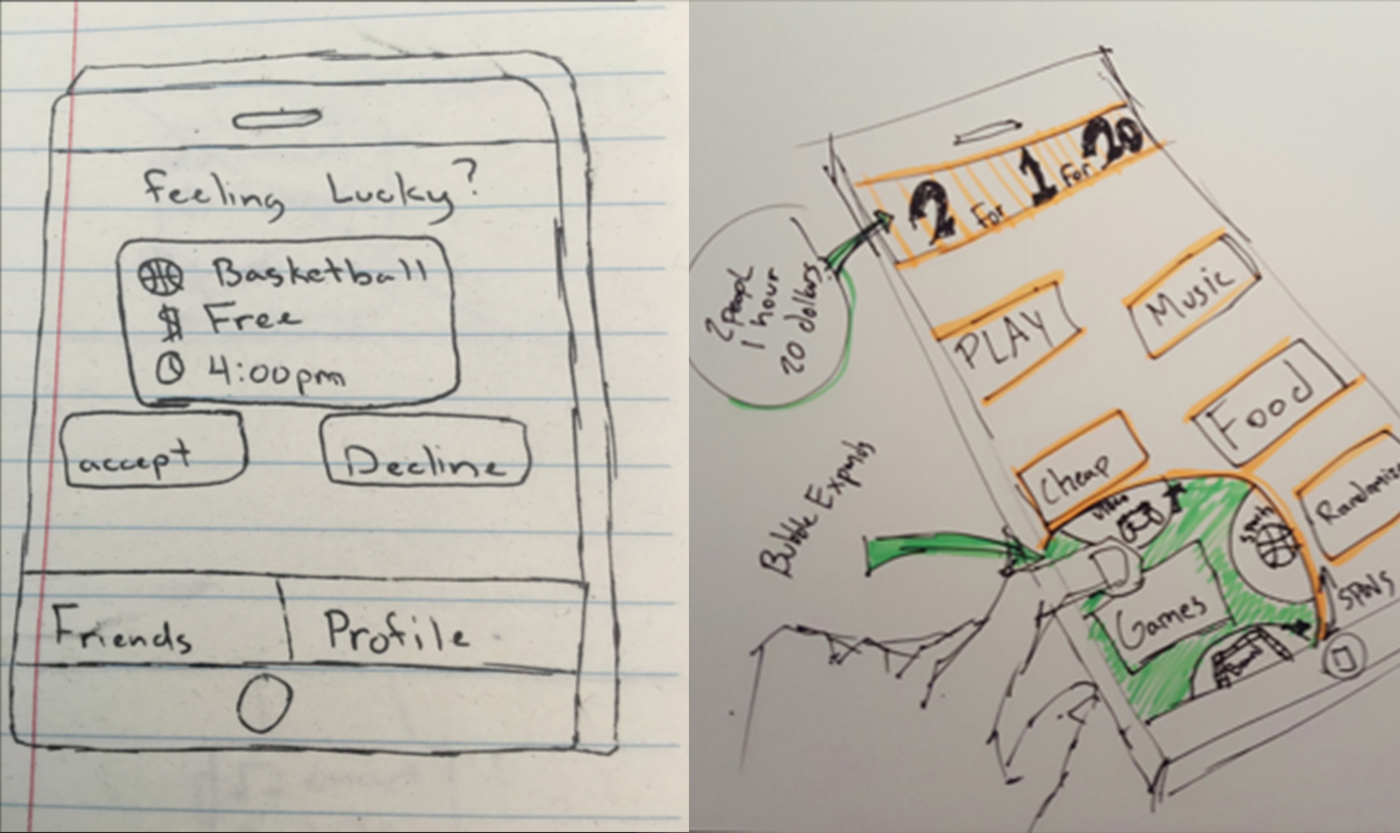 feeling Lucky?
Basketball
$ Free
4:00pm
accept
Decline
Friends
Profile
2 For 1 For 20
2 People
1 hour
20 dollars
PLAY
Music
Food
Cheap
Randomize
Bubble Expands
Video
Sports
Games